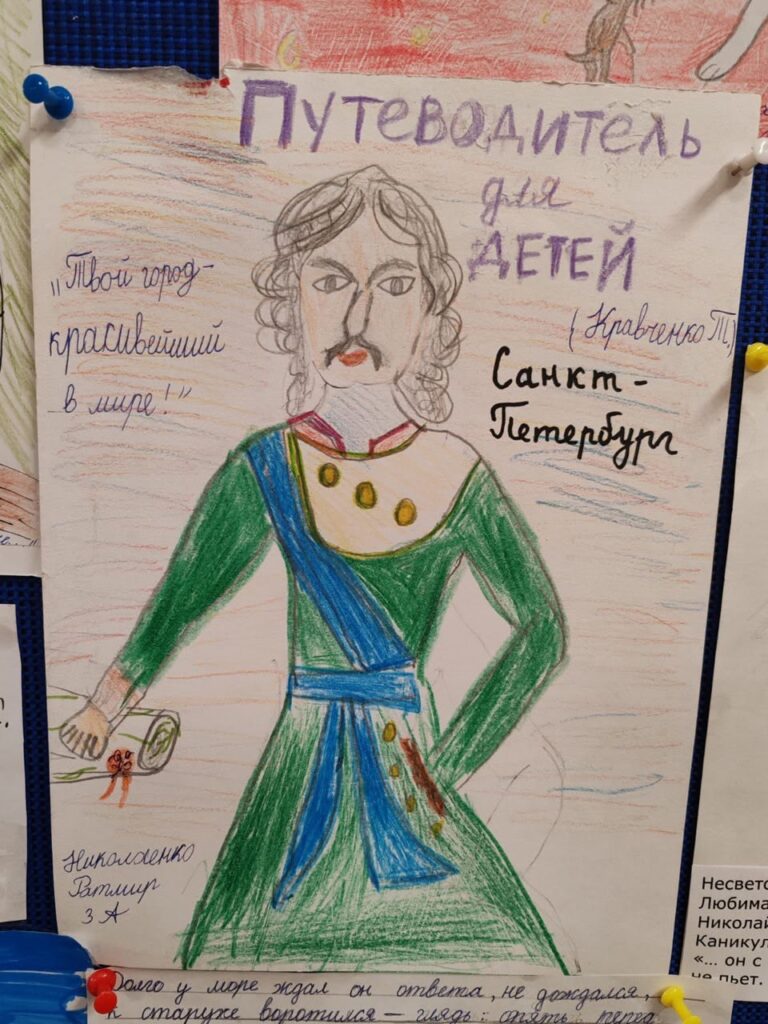 Путеводитель
для
ДЕТЕЙ
(Кравченко Т.)
„Твой город-
красивейший
в мире!"
Санкт-
Петербург
Николаенко
Ратмир
3 А
Несвето
Любима
Николай
Каникул
«... он с
не пьет.
Долго у море ждал он ответа, не дождался,
к старухе воротился — глядь: опять перед